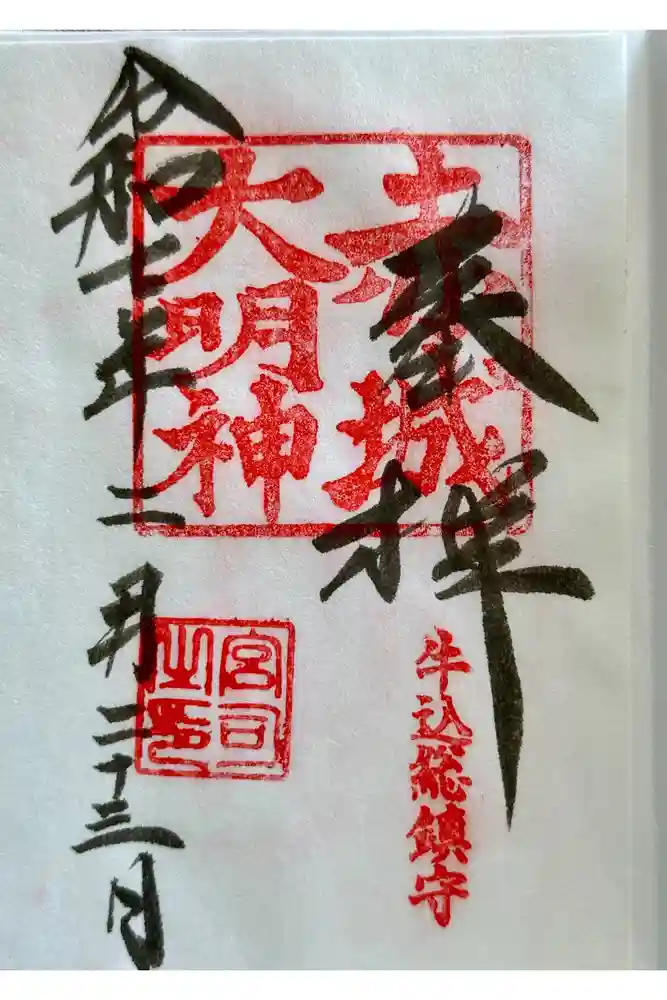 奉拝
赤城
大明神
牛込総鎮守
宮司
之印
令和二年二月二十三日